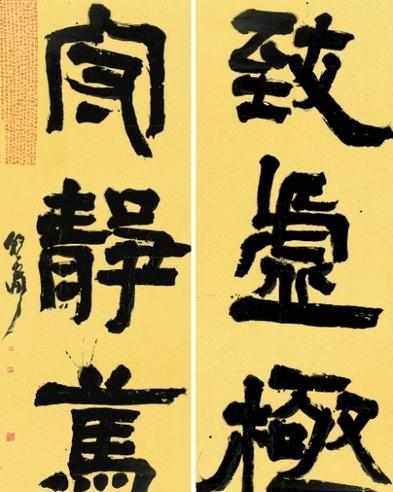 致虛極
守靜篤